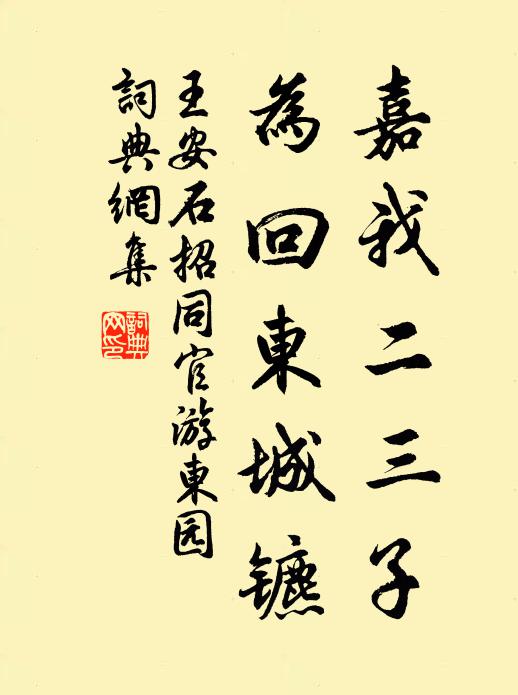 嘉我二三子
為回東城镳
王安石招同官游東园
詞典網集
詞典网印